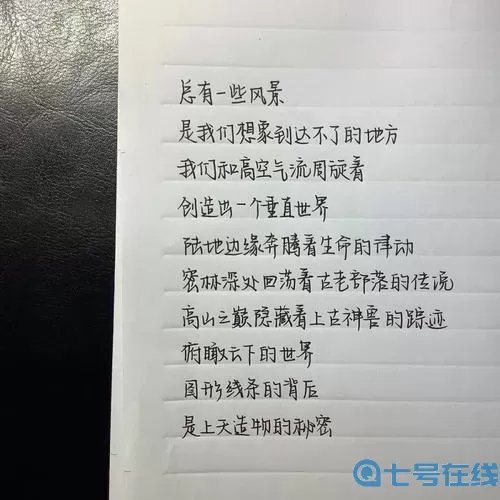 总有一些风景
是我们想象到达不了的地方
我们和高空气流周旋着
创造出一个垂直世界
陆地边缘奔腾着生命的律动
密林深处回荡着古老部落的传说
高山之巅隐藏着上古神兽的踪迹
俯瞰云下的世界
图形线条的背后
是上天造物的秘密
七号在线